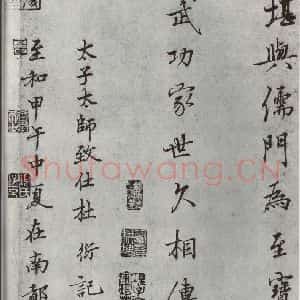 堪與儒門為至寶
武功家世久相傳
太子太師致仕杜衍記
至和甲午中夏在南都
Shufawang.CN